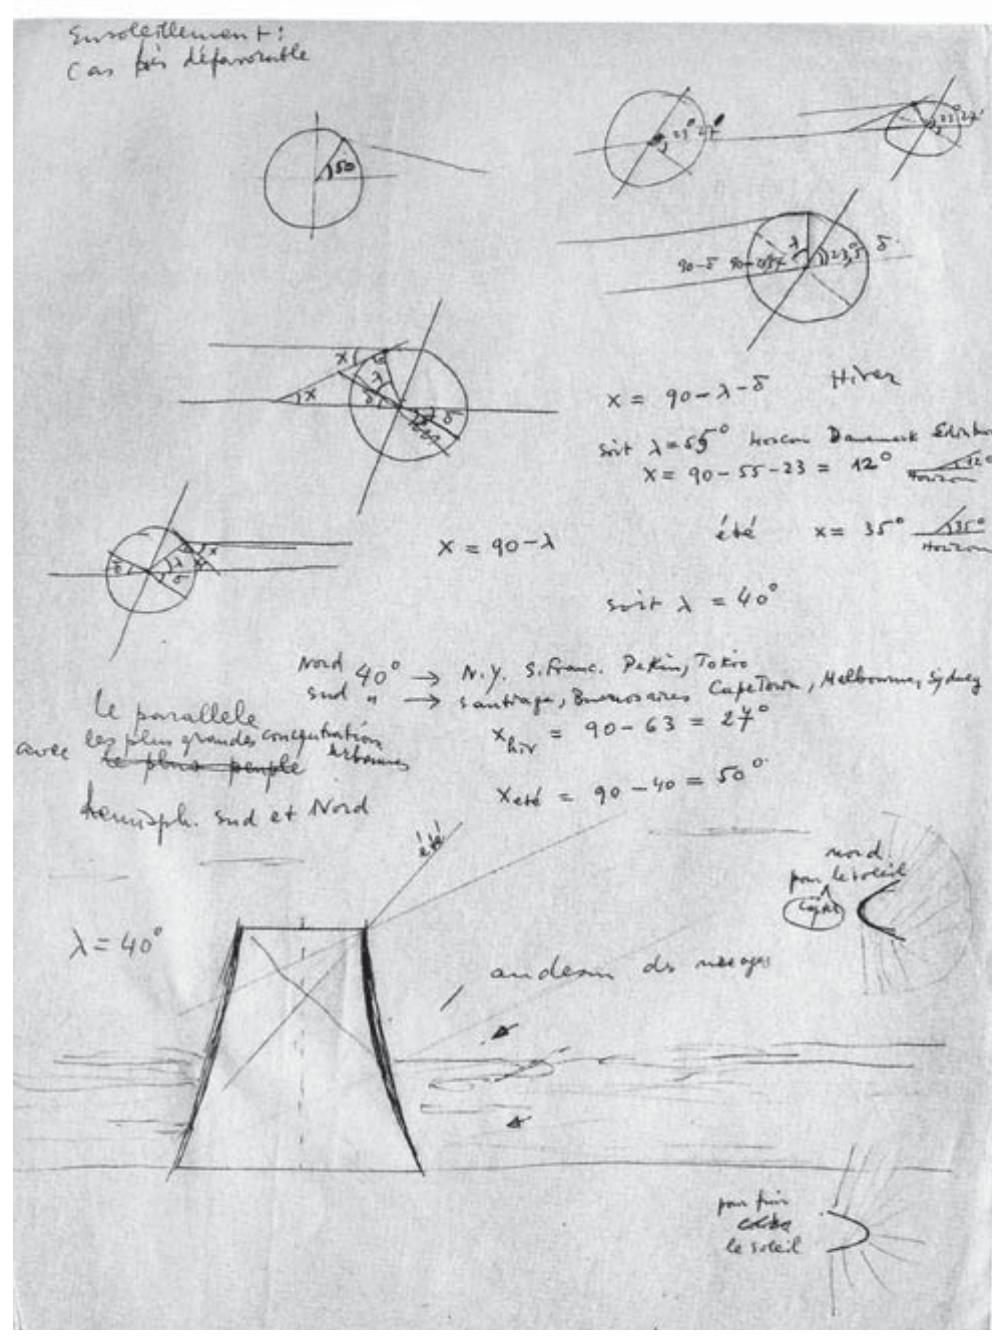 Ensoleillement:
Cas très défavorable
50
23° 27'
23° 27'
λ
23,5°
δ
90-δ
x
λ
x
δ
δ
x = 90 - λ - δ Hiver
soit λ = 55° Moscou Danemark
x = 90 - 55 - 23 = 12° 12°
Horizon
été x = 35° 35°
Horizon
x
λ
δ
x = 90 - λ
soit λ = 40°
Nord 40° → N.Y. S.Franc. Pekin, Tokio
sud " → Santiago, Buenos aires Cape Town, Melbourne, Sydney
Le parallele
avec les plus grandes concentration
urbaines
le plus peuple
hemisph. sud et Nord
x hiv = 90 - 63 = 27°
x eté = 90 - 40 = 50°
été
nord
pour le soleil
λ = 40°
au dessus des nuages
pour fuir
le soleil